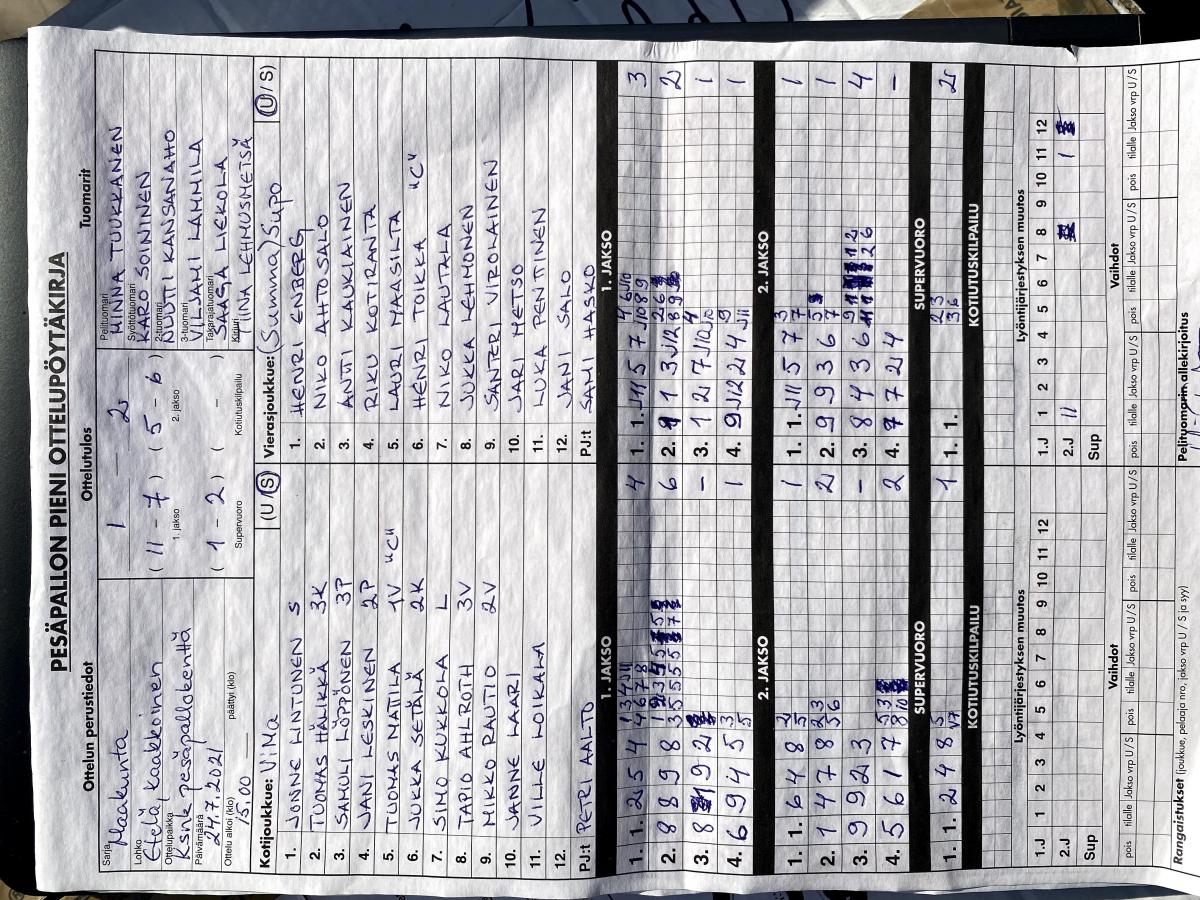 PESÄPALLON PIENI OTTELUPÖYTÄKIRJA
Ottelun perustiedot
Sarja
Maakunta
Lohko
Etelä Kaakkoinen
Ottelupaikka
Ksnk pesäpallokenttä
Päivämäärä
24.7.2021
Ottelu alkoi (klo)
15.00
päättyi (klo)
Ottelutulos
1 — 2
( 11 - 7 ) ( 5 - 6 )
1. jakso 2. jakso
( 1 - 2 ) ( - )
Supervuoro Kotiutuskilpailu
Tuomarit
Pelituomari
MINNA TUUKKANEN
Syöttötuomari
KARO SOININEN
2-tuomari
NUUTTI KANSANAHO
3-tuomari
VILJAMI LAMMILA
Takarajatuomari
LIEKOLA
Kirjuri
TIINA LEHMUSMETSÄ
Kotijoukkue: ViMa (U/S)
1. JONNE LINTUNEN S
2. TUOMAS HÄLIKKÄ 3K
3. SAMULI LÖPPÖNEN 3P
4. JANI LESKINEN 2P
5. TUOMAS MATTILA 1V "C"
6. JUKKA SETÄLÄ 2K
7. SIMO KUKKOLA L
8. TAPIO AHLROTH 3V
9. MIKKO RAUTIO 2V
10. JANNE LAARI
11. VILLE LOIKALA
12.
PJ:t PETRI AALTO
Vierasjoukkue: (Summa) Siipo (U/S)
1. HENRI ENBERG
2. NIKO AHTOSALO
3. ANTTI KAUKIAINEN
4. RIKU KOTIRANTA
5. LAURI MAASILTA
6. HENRI TOIKKA "C"
7. NIKO LAUTALA
8. JUKKA LEHMONEN
9. SANTERI VIROLAINEN
10. JARI METSO
11. LUKA PENTTINEN
12. JANI SALO
PJ:t SAMI HASKO
1. JAKSO
1. 1. 2 5 4 4
2. 8 8 9 8 6
3. 8 9 2 -
4. 6 9 4 5 1
2. JAKSO
1. 1. 6 4 8 1
2. 1 4 7 8 2
3. 9 9 2 3 -
4. 5 6 1 7 2
SUPERVUORO
1. 1. 2 4 8 1
KOTIUTUSKILPAILU
1. JAKSO
1. 1. J11 5 7 3
2. 9 1 3 J12 2
3. 1 2 7 J10 1
4. 9 J12 2 4 1
2. JAKSO
1. 1. J11 5 7 1
2. 9 9 3 6 1
3. 8 4 3 6 4
4. 7 7 2 4 -
SUPERVUORO
1. 1. 2
KOTIUTUSKILPAILU
Lyöntijärjestyksen muutos
1 2 3 4 5 6 7 8 9 10 11 12
1.J
2.J
Sup
Vaihdot
pois tilalle Jakso vrp U/S pois tilalle Jakso vrp U/S pois tilalle Jakso vrp U/S
Lyöntijärjestyksen muutos
1 2 3 4 5 6 7 8 9 10 11 12
1.J
2.J 11 1
Sup
Vaihdot
pois tilalle Jakso vrp U/S pois tilalle Jakso vrp U/S pois tilalle Jakso vrp U/S
Rangaistukset (joukkue, pelaaja nro, jakso vrp U / S ja syy)
Pelituomarin allekirjoitus